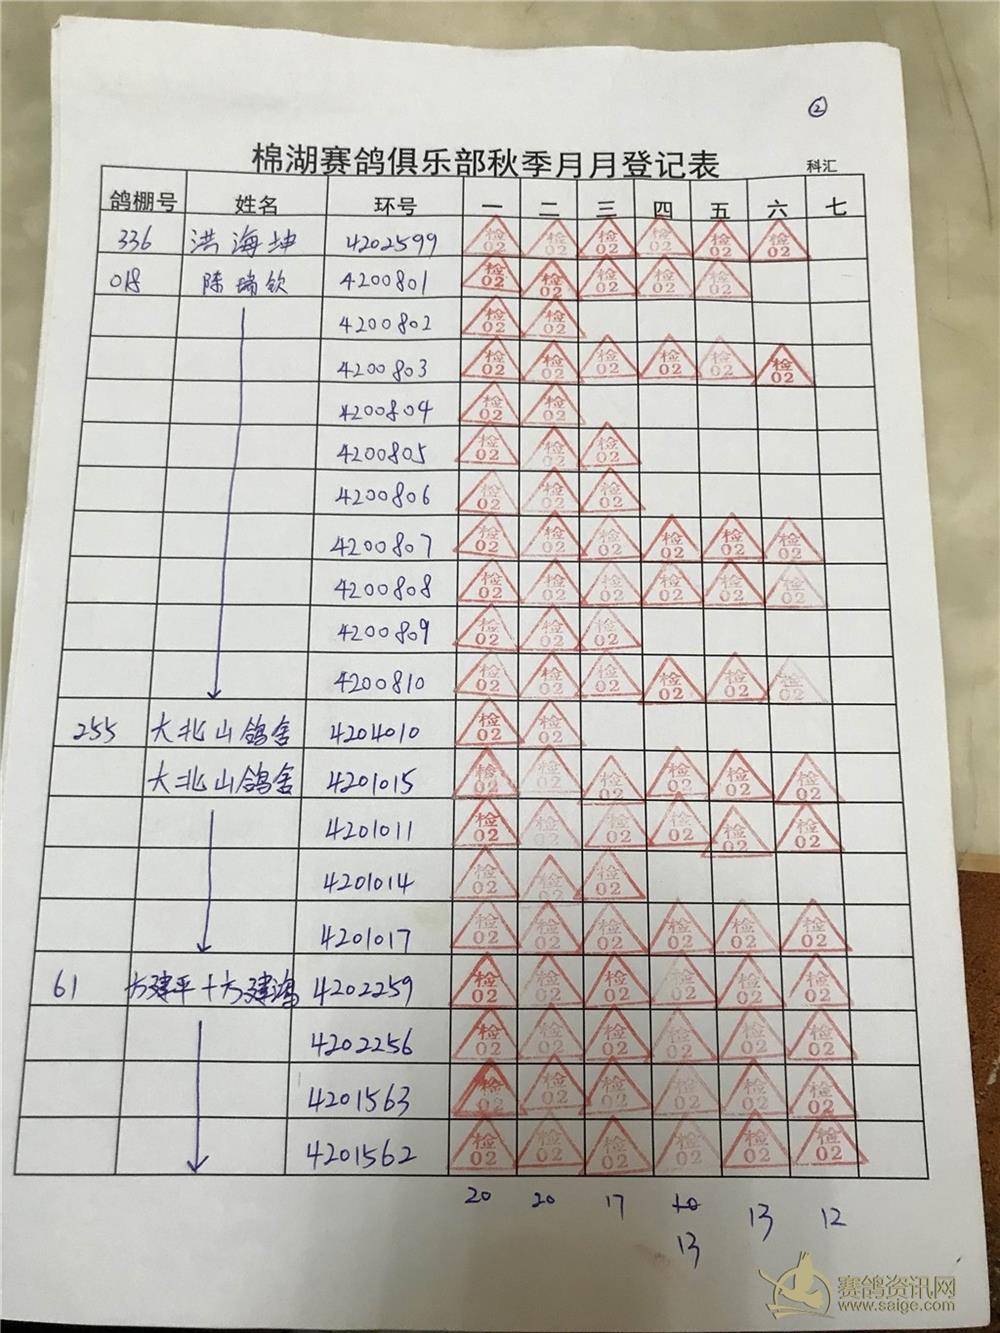 ②
棉湖赛鸽俱乐部秋季月月登记表
科汇
鸽棚号 姓名 环号 一 二 三 四 五 六 七
336 洪海坤 4202599 检02 检02 检02 检02 检02 检02
018 陈瑞钦 4200801 检02 检02 检02 检02 检02
4200802 检02 检02
4200803 检02 检02 检02 检02 检02 检02
4200804 检02 检02
4200805 检02 检02 检02
4200806 检02 检02 检02
4200807 检02 检02 检02 检02 检02 检02
4200808 检02 检02 检02 检02 检02 检02
4200809 检02 检02 检02
4200810 检02 检02 检02 检02 检02 检02
255 大北山鸽舍 4204010 检02 检02
大北山鸽舍 4201015 检02 检02 检02 检02 检02 检02
4201011 检02 检02 检02 检02 检02 检02
4201014 检02 检02 检02
4201017 检02 检02 检02 检02 检02 检02
61 方建平+方建鸿 4202259 检02 检02 检02 检02 检02 检02
4202256 检02 检02 检02 检02 检02 检02
4201563 检02 检02 检02 检02 检02 检02
4201562 检02 检02 检02 检02 检02 检02
20 20 17 10 13 12
13
赛鸽资讯网
www.saige.com